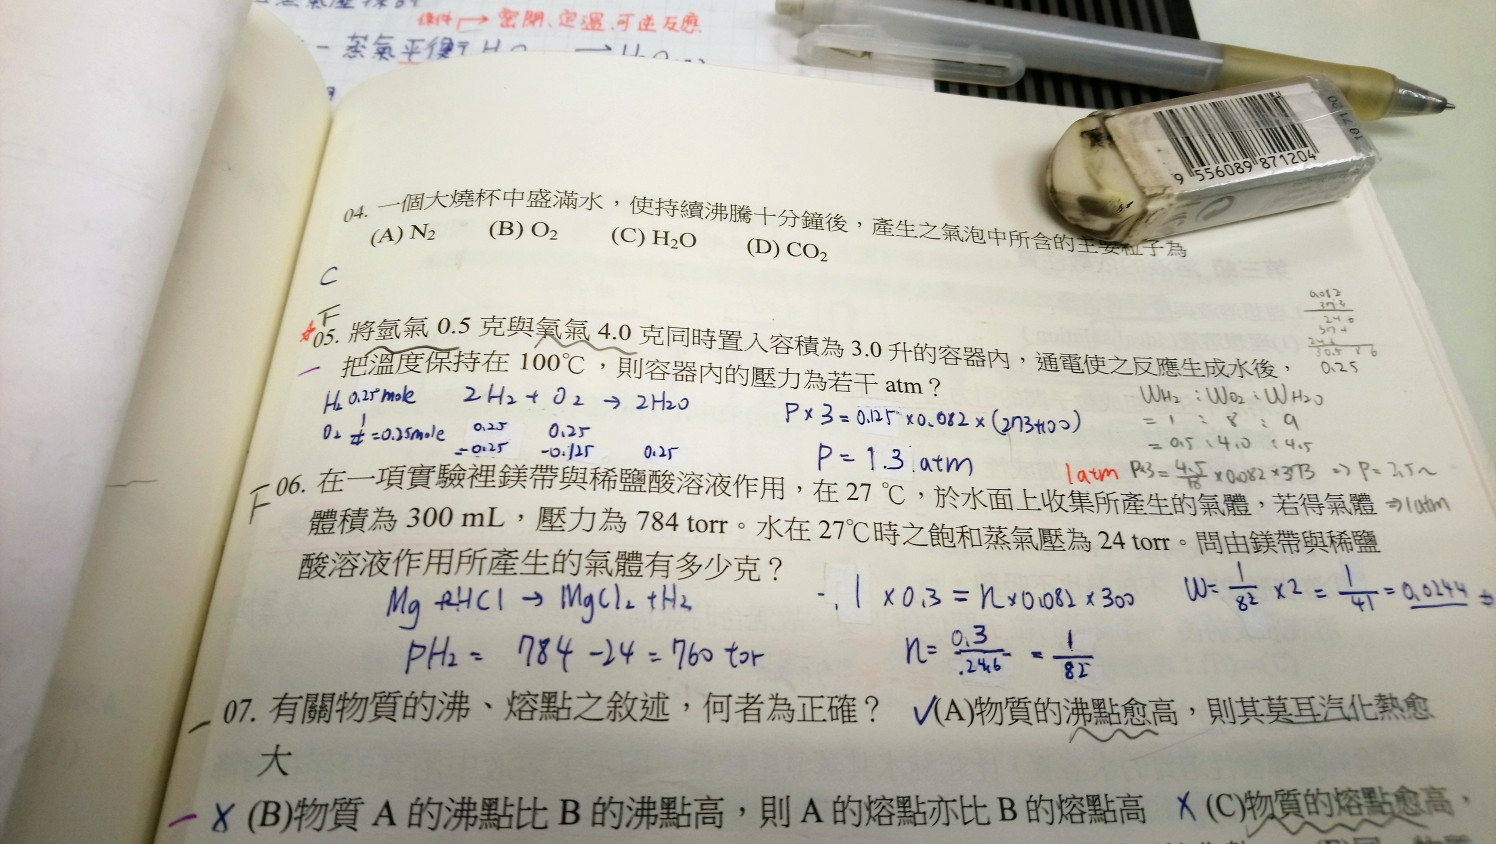 條件 → 密閉、定溫、可逆反應
04. 一個大燒杯中盛滿水，使持續沸騰十分鐘後，產生之氣泡中所含的主要粒子為
(A) N₂ (B) O₂ (C) H₂O (D) CO₂
C
05. 將氫氣 0.5 克與氧氣 4.0 克同時置入容積為 3.0 升的容器內，通電使之反應生成水後，
把溫度保持在 100℃，則容器內的壓力為若干 atm？
H₂ 0.25 mole 2H₂ + O₂ → 2H₂O
P × 3 = 0.125 × 0.082 × (273+100)
0.25 0.25
-0.25 -0.125 0.25
P = 1.3 atm
0.25
WH₂ : WO₂ : WH₂O
= 1 : 8 : 9
= 0.5 : 4.0 : 4.5
1atm
⇒ 1atm
06. 在一項實驗裡鎂帶與稀鹽酸溶液作用，在 27 ℃，於水面上收集所產生的氣體，若得氣體
體積為 300 mL，壓力為 784 torr。水在 27℃時之飽和蒸氣壓為 24 torr。問由鎂帶與稀鹽
酸溶液作用所產生的氣體有多少克？
Mg + 2HCl → MgCl₂ + H₂
PH₂ = 784 - 24 = 760 tor
1 × 0.3 = n × 0.082 × 300
n = 0.3/24.6 = 1/82
W = 1/82 × 2 = 1/41 = 0.0244
07. 有關物質的沸、熔點之敘述，何者為正確？ ✓(A)物質的沸點愈高，則其莫耳汽化熱愈
大
X (B)物質 A 的沸點比 B 的沸點高，則 A 的熔點亦比 B 的熔點高 X (C)物質的熔點愈高，
9 556089 871204